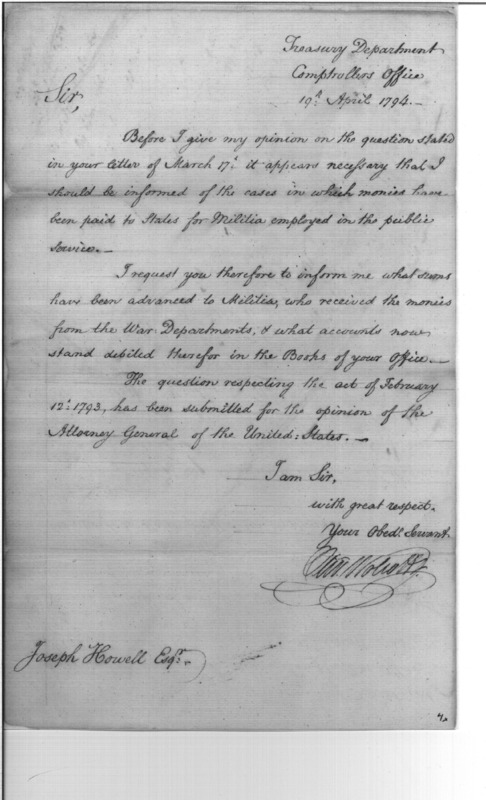 Treasury Department
Comptrollers Office
19th April 1794.—
Sir,
Before I give my opinion on the question stated
in your letter of March 17th it appears necessary that I
should be informed of the cases in which monies have
been paid to States for Militia employed in the public
service.—
I request you therefore to inform me what sums
have been advanced to Militia, who received the monies
from the War Departments, & what accounts now
stand debited therefor in the Books of your Office.—
The question respecting the act of February
12th 1793, has been submitted for the opinion of the
Attorney General of the United States.—
I am Sir,
with great respect.
Your Obedt. Servant.
Oliv Wolcott Jr
Joseph Howell Esqr.